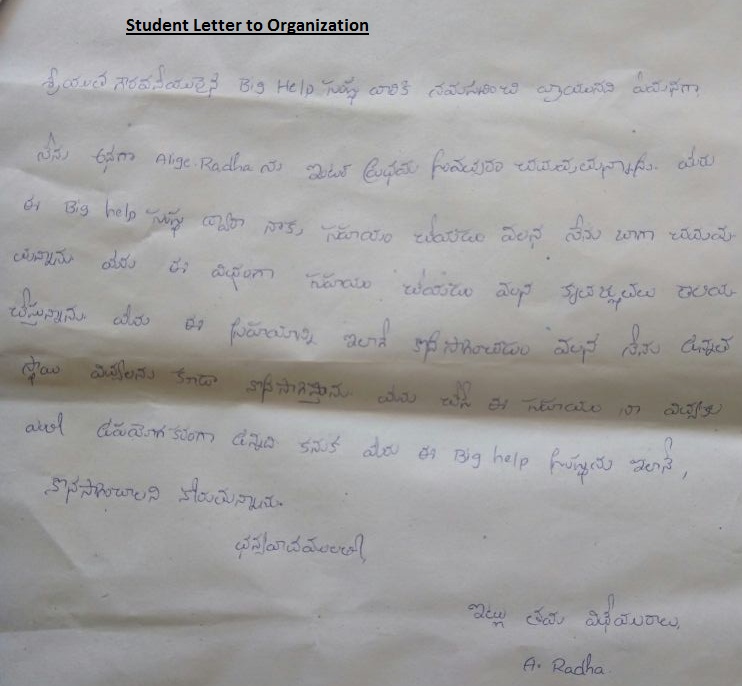 Student Letter to Organization
శ్రీయుత గౌరవనీయులైన Big Help సంస్థ వారికి నమస్కరించి వ్రాయునది ఏమనగా,
నేను అనగా Alige.Radha ను ఇంటర్ ప్రథమ సంవత్సరం చదువుచున్నాను. మీరు
ఈ Big help సంస్థ ద్వారా నాకు సహాయం చేయడం వలన నేను బాగా చదువు
చున్నాను మీరు ఈ విధంగా సహాయం చేయడం వలన కృతజ్ఞతలు తెలియ
చేస్తున్నాను. మీరు ఈ సహాయాన్ని ఇలాగే కొనసాగించడం వలన నేను ఉన్నత
స్థాయి విద్యలను కూడా కొనసాగిస్తాను. మీరు చేసే ఈ సహాయం నా విద్యకు
ఎంతో ఉపయోగకరంగా ఉన్నది కనుక మీరు ఈ Big help సంస్థను ఇలానే,
కొనసాగించాలని కోరుచున్నాను.
ధన్యవాదములతో,
ఇట్లు తమ విధేయురాలు,
A. Radha.